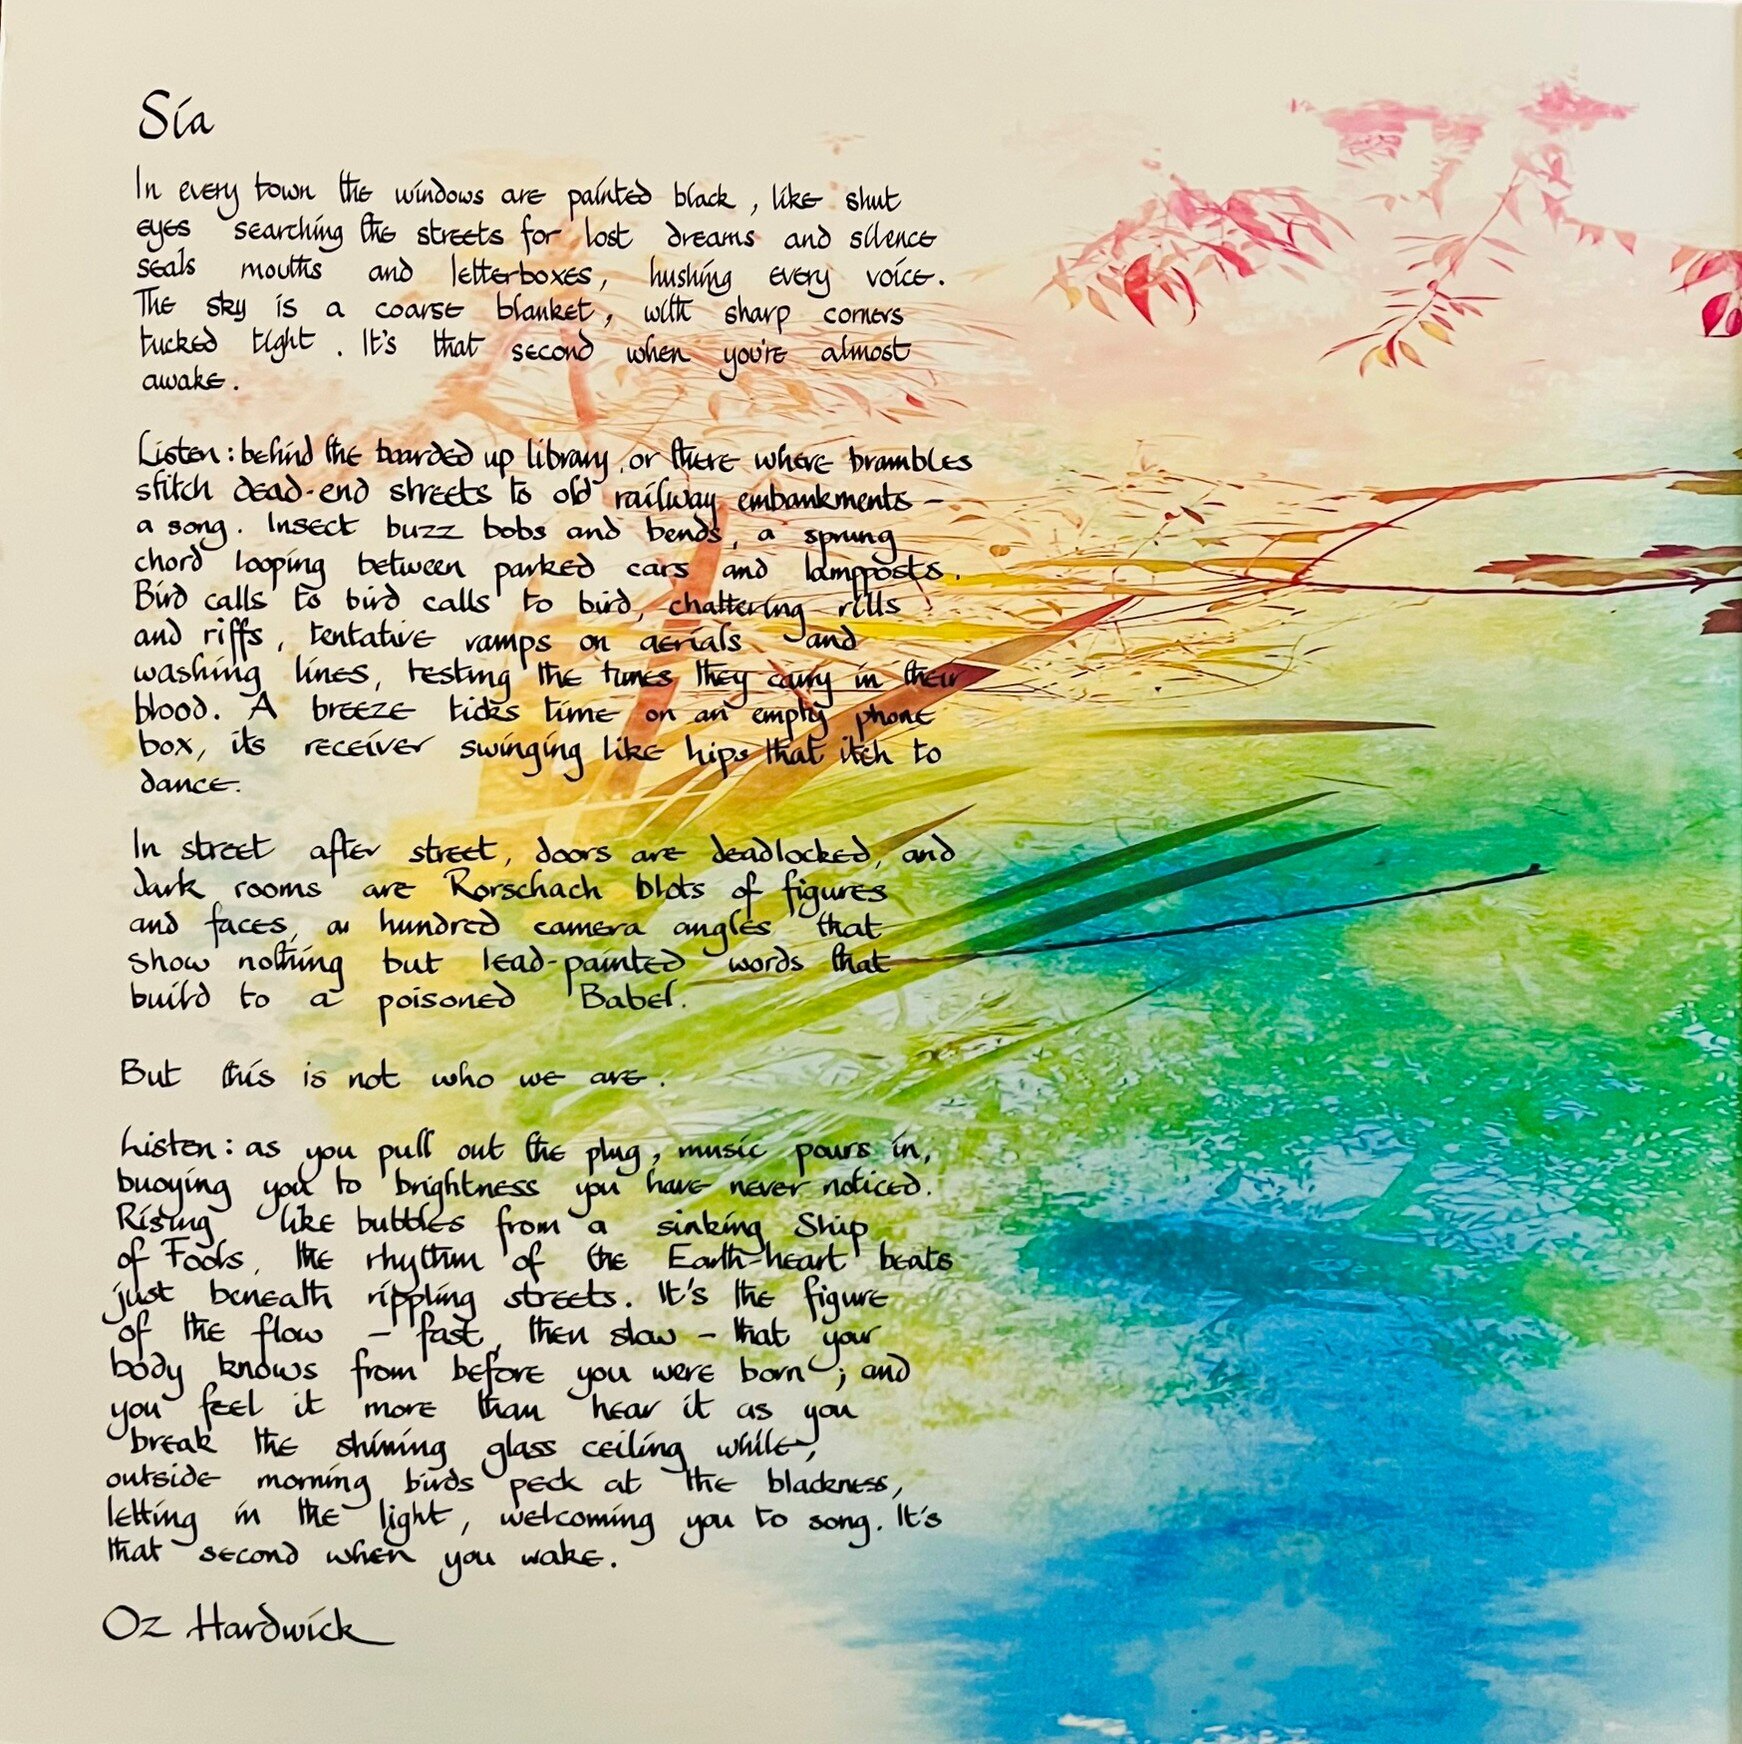 Sía
In every town the windows are painted black, like shut
eyes searching the streets for lost dreams and silence
seals mouths and letterboxes, hushing every voice.
The sky is a coarse blanket, with sharp corners
tucked tight. It's that second when you're almost
awake.
Listen: behind the boarded up library, or there where brambles
stitch dead-end streets to old railway embankments –
a song. Insect buzz bobs and bends, a sprung
chord looping between parked cars and lampposts.
Bird calls to bird calls to bird, chattering rills
and riffs, tentative vamps on aerials and
washing lines, testing the tunes they carry in their
blood. A breeze ticks time on an empty phone
box, its receiver swinging like hips that itch to
dance.
In street after street, doors are deadlocked, and
dark rooms are Rorschach blots of figures
and faces, a hundred camera angles that
show nothing but lead-painted words that
build to a poisoned Babel.
But this is not who we are.
Listen: as you pull out the plug, music pours in,
buoying you to brightness you have never noticed.
Rising like bubbles from a sinking Ship
of Fools, the rhythm of the Earth-heart beats
just beneath rippling streets. It's the figure
of the flow – fast, then slow – that your
body knows from before you were born; and
you feel it more than hear it as you
break the shining glass ceiling while,
outside morning birds peck at the blackness,
letting in the light, welcoming you to song. It's
that second when you wake.
Oz Hardwick